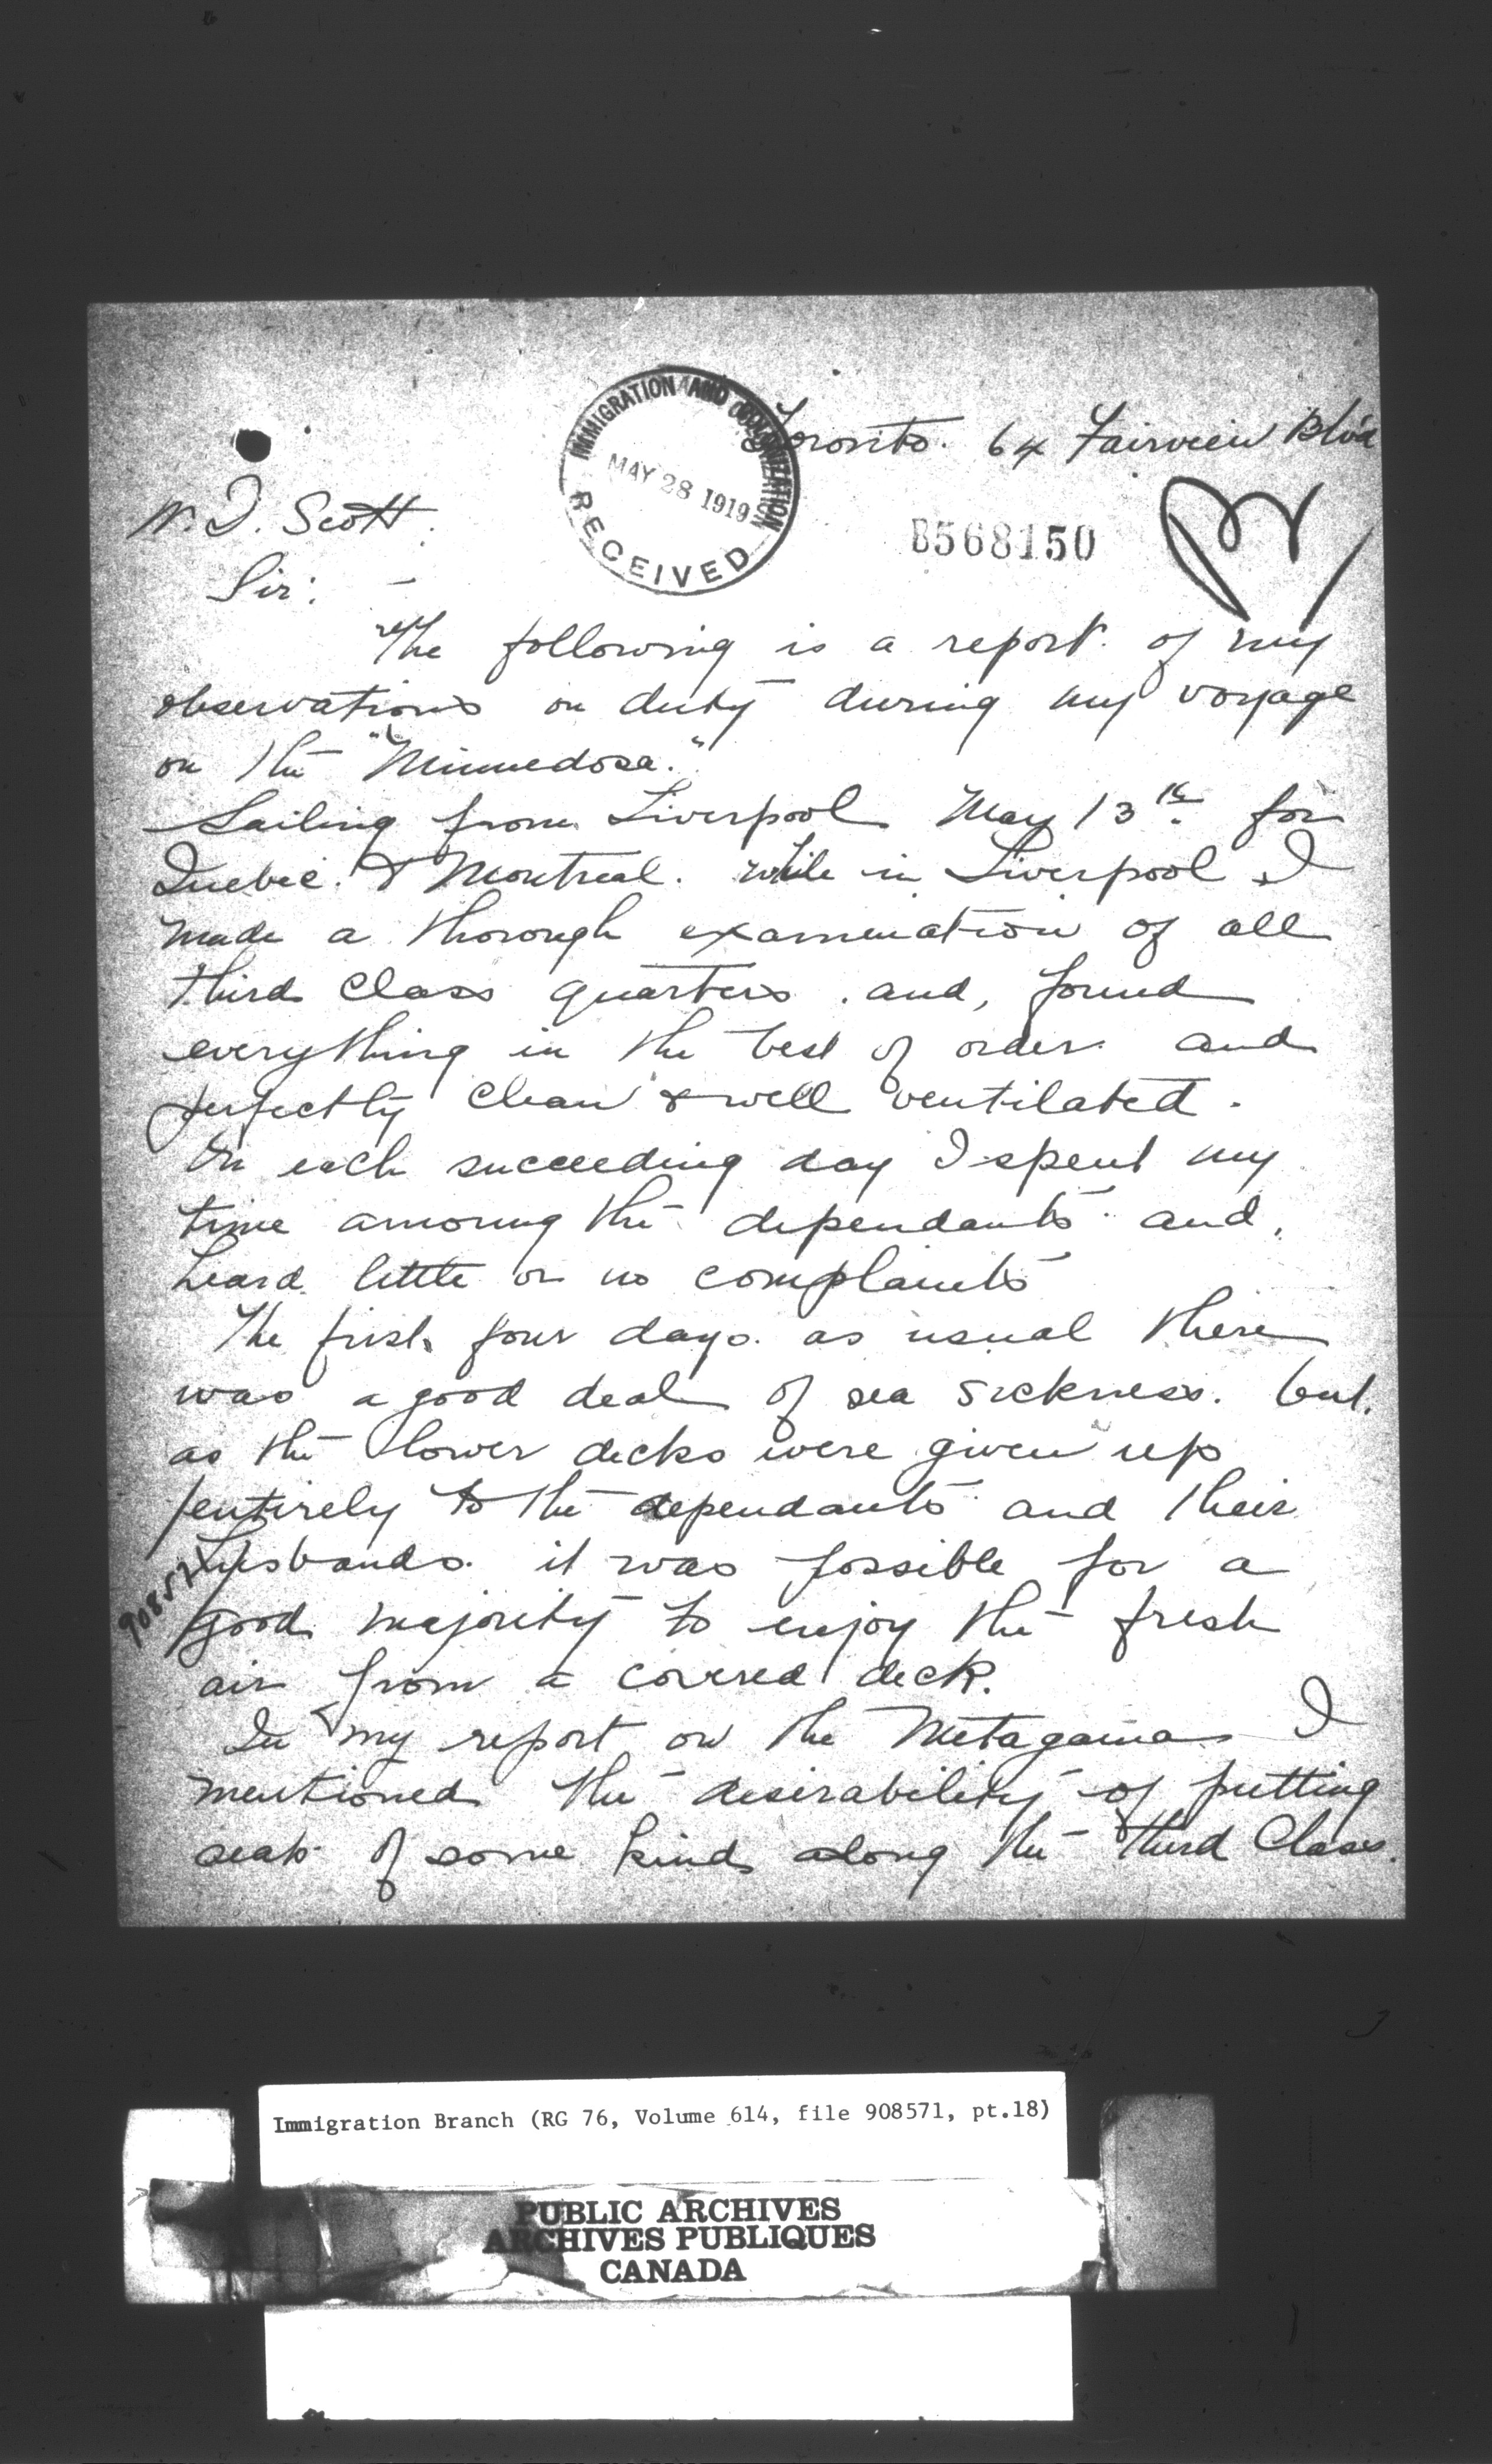 IMMIGRATION AND COLONIZATION
MAY 28 1919
RECEIVED
Toronto. 64 Fairview Blvd
W. D. Scott.
B568150
Sir: —
The following is a report of my
observations on duty during my voyage
on the "Minnedosa."
Sailing from Liverpool May 13th for
Quebec. & Montreal. While in Liverpool I
made a thorough examination of all
third class quarters. and, found
everything in the best of order and
perfectly clean & well ventilated.
On each succeeding day I spent my
time amoung the dependants and,
heard little or no complaints
The first four days. as usual there
was a good deal of sea sickness. but.
as the lower decks were given up
entirely to the dependants and their
husbands. it was possible for a
908571
good majority to enjoy the fresh
air from a covered deck.
In my report on the Metagama I
mentioned the desirability of putting
seats of some kind along the third Class.
Immigration Branch (RG 76, Volume 614, file 908571, pt.18)
PUBLIC ARCHIVES
ARCHIVES PUBLIQUES
CANADA